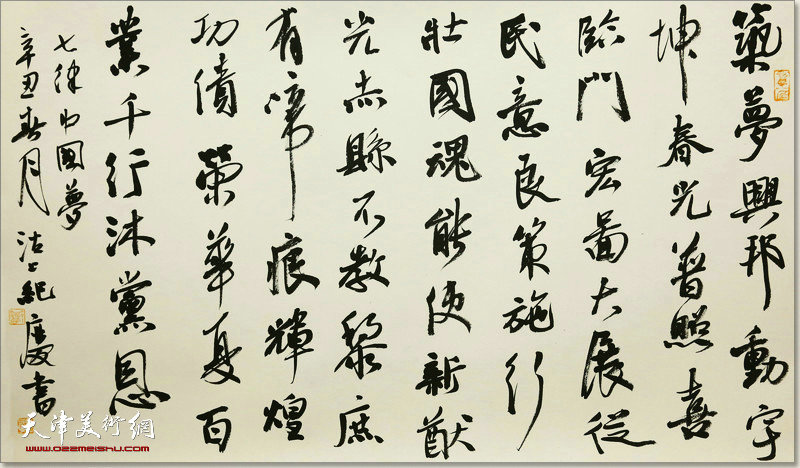 築夢興邦動宇
坤春光普照喜
臨門宏圖大展從
民意良策施行
壯國魂能使新猷
光赤縣不教黎庶
有啼痕輝煌
功績榮華夏百
業千行沐黨恩
七律中國夢
辛丑春月沽上紀慶書
天津美術網
www.022meishu.com